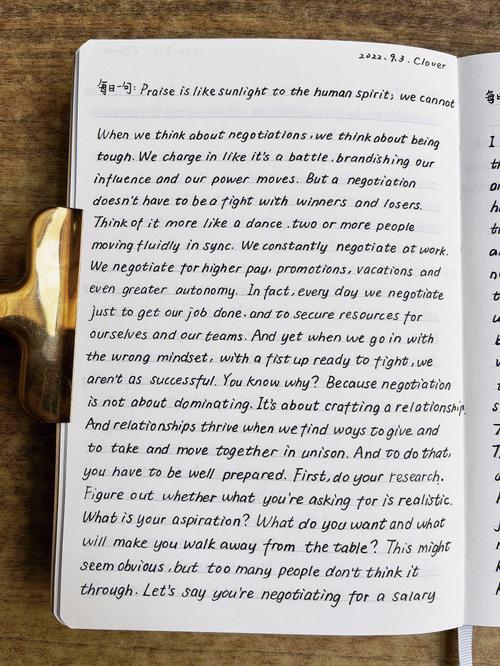 2022.9.3. Clover
每日一句: Praise is like sunlight to the human spirit; we cannot
When we think about negotiations, we think about being
tough. We charge in like it's a battle, brandishing our
influence and our power moves. But a negotiation
doesn't have to be a fight with winners and losers.
Think of it more like a dance, two or more people
moving fluidly in sync. We constantly negotiate at work.
We negotiate for higher pay, promotions, vacations and
even greater autonomy. In fact, every day we negotiate
just to get our job done. and to secure resources for
ourselves and our teams. And yet when we go in with
the wrong mindset, with a fist up ready to fight, we
aren't as successful. You know why? Because negotiation
is not about dominating. It's about crafting a relationship.
And relationships thrive when we find ways to give and
to take and move together in unison. And to do that,
you have to be well prepared. First, do your research.
Figure out whether what you're asking for is realistic.
What is your aspiration? What do you want and what
will make you walk away from the table? This might
seem obvious, but too many people don't think it
through. Let's say you're negotiating for a salary